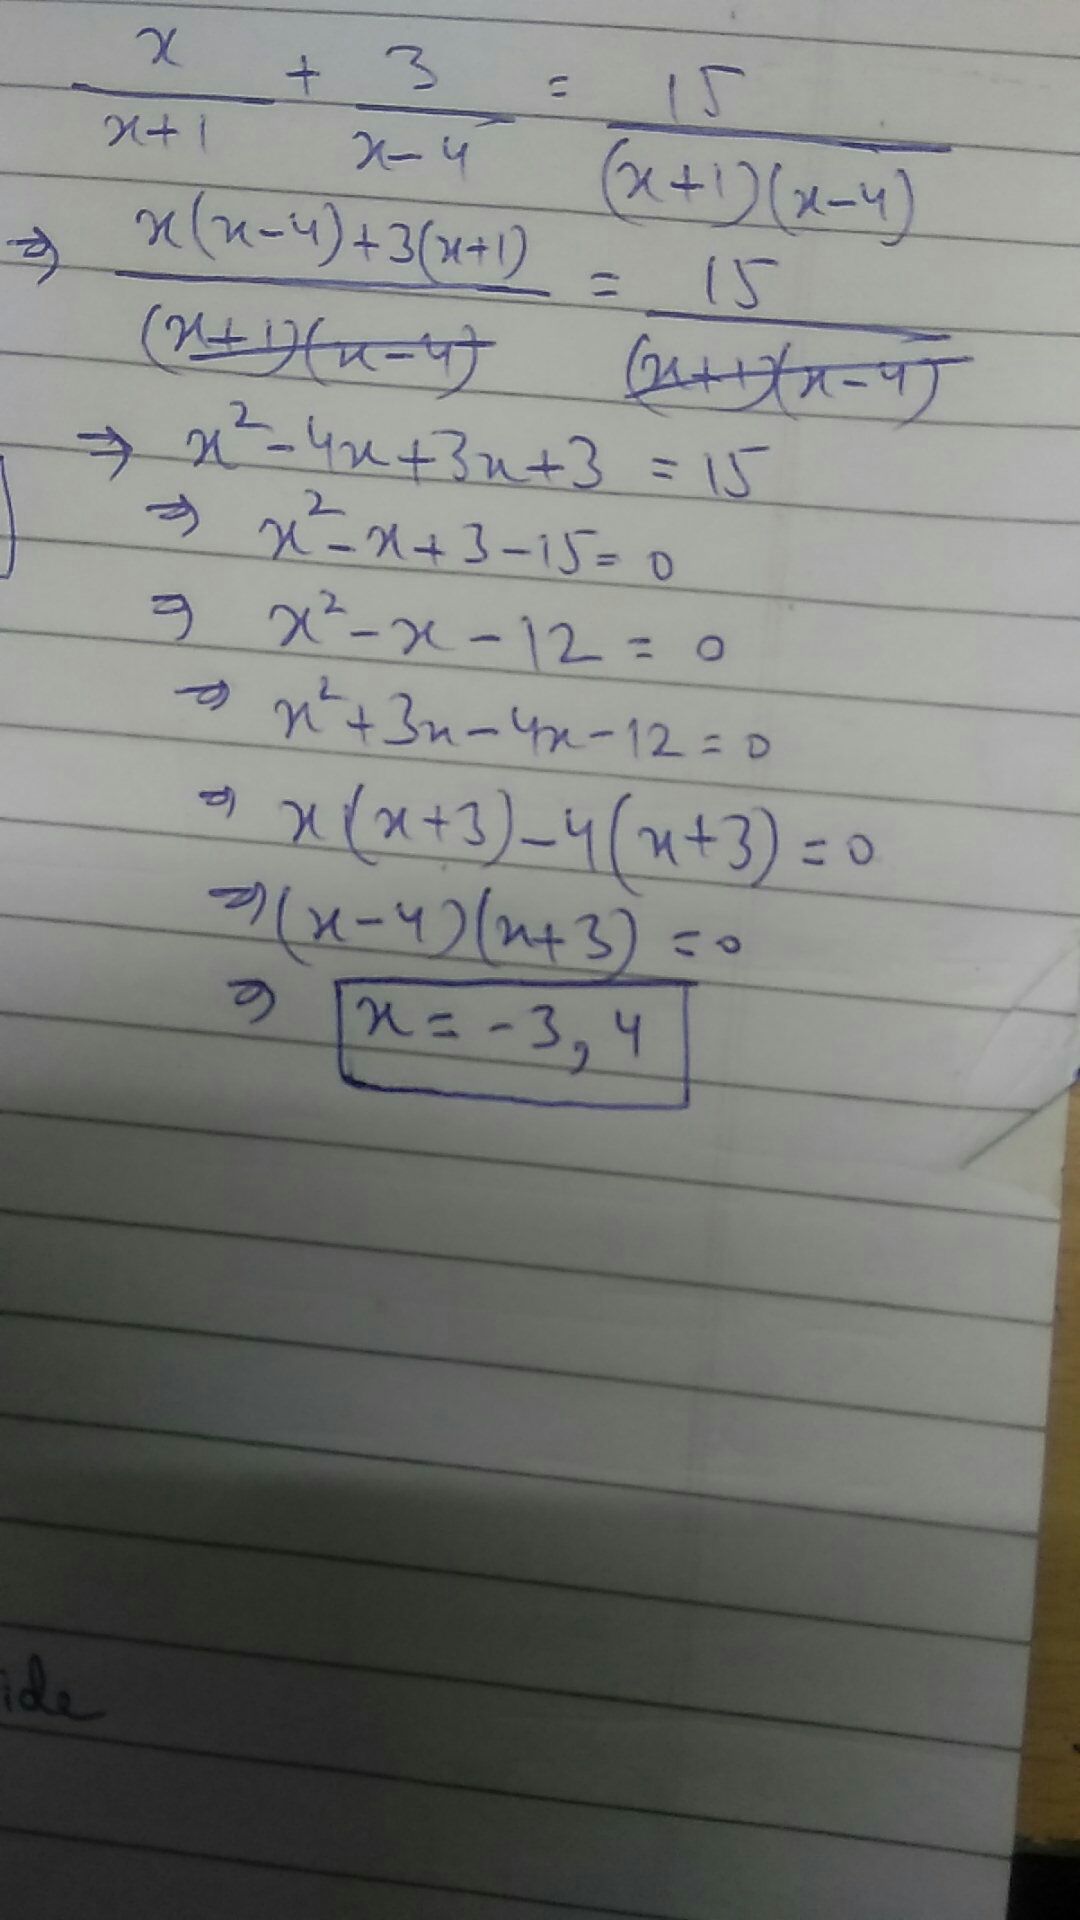 x/(x+1) + 3/(x-4) = 15/((x+1)(x-4))
⇒ (x(x-4)+3(x+1))/((x+1)(x-4)) = 15/((x+1)(x-4))
⇒ x²-4x+3x+3 = 15
⇒ x²-x+3-15=0
⇒ x²-x-12=0
⇒ x²+3x-4x-12=0
⇒ x(x+3)-4(x+3)=0
⇒ (x-4)(x+3)=0
⇒ x=-3,4
ide